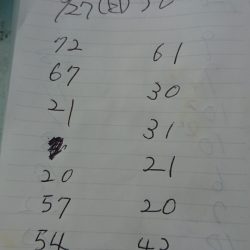 727(日)
72 61
67 30
21 31
21
20 20
57 42
54